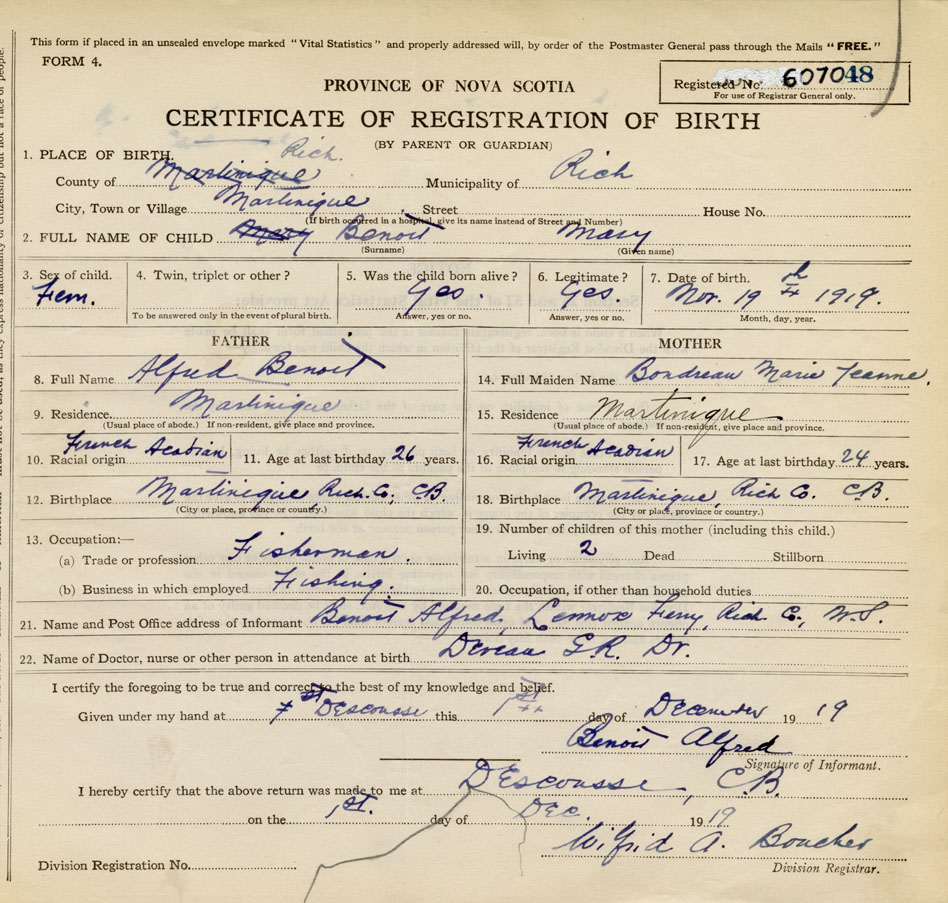 This form if placed in an unsealed envelope marked "Vital Statistics" and properly addressed will, by order of the Postmaster General pass through the Mails "FREE."
FORM 4.
Registered No 607048
For use of Registrar General only.
PROVINCE OF NOVA SCOTIA
CERTIFICATE OF REGISTRATION OF BIRTH
(BY PARENT OR GUARDIAN)
1. PLACE OF BIRTH.
Rich.
County of Martinique Municipality of Rich
City, Town or Village Martinique, Street House No.
(If birth occurred in a hospital, give its name instead of Street and Number)
2. FULL NAME OF CHILD Mary Benoit Mary
(Surname) (Given name)
3. Sex of child. 4. Twin, triplet or other? 5. Was the child born alive? 6. Legitimate? 7. Date of birth.
Fem. Yes. Yes. Nov. 19 th 1919.
To be answered only in the event of plural birth. Answer, yes or no. Answer, yes or no. Month, day, year.
FATHER MOTHER
8. Full Name Alfred Benoit 14. Full Maiden Name Boudreau Marie Jeanne.
9. Residence Martinique 15. Residence Martinique
(Usual place of abode.) If non-resident, give place and province. (Usual place of abode.) If non-resident, give place and province.
10. Racial origin French Acadian 11. Age at last birthday 26 years. 16. Racial origin French Acadian 17. Age at last birthday 24 years.
12. Birthplace Martinique Rich. Co., C.B. 18. Birthplace Martinique, Rich Co. C.B.
(City or place, province or country.) (City or place, province or country.)
13. Occupation:— 19. Number of children of this mother (including this child.)
(a) Trade or profession Fisherman. Living 2 Dead Stillborn
(b) Business in which employed Fishing. 20. Occupation, if other than household duties
21. Name and Post Office address of Informant Benoit Alfred, Lennox Ferry, Rich. Co., N.S.
22. Name of Doctor, nurse or other person in attendance at birth Deveau G.R. Dr.
I certify the foregoing to be true and correct to the best of my knowledge and belief.
Given under my hand at DEscousse this 1st day of December 1919
Benoit Alfred
Signature of Informant.
I hereby certify that the above return was made to me at DEscousse, C.B.
on the 1st. day of Dec. 1919
Wilfrid A. Boucher
Division Registration No. Division Registrar.